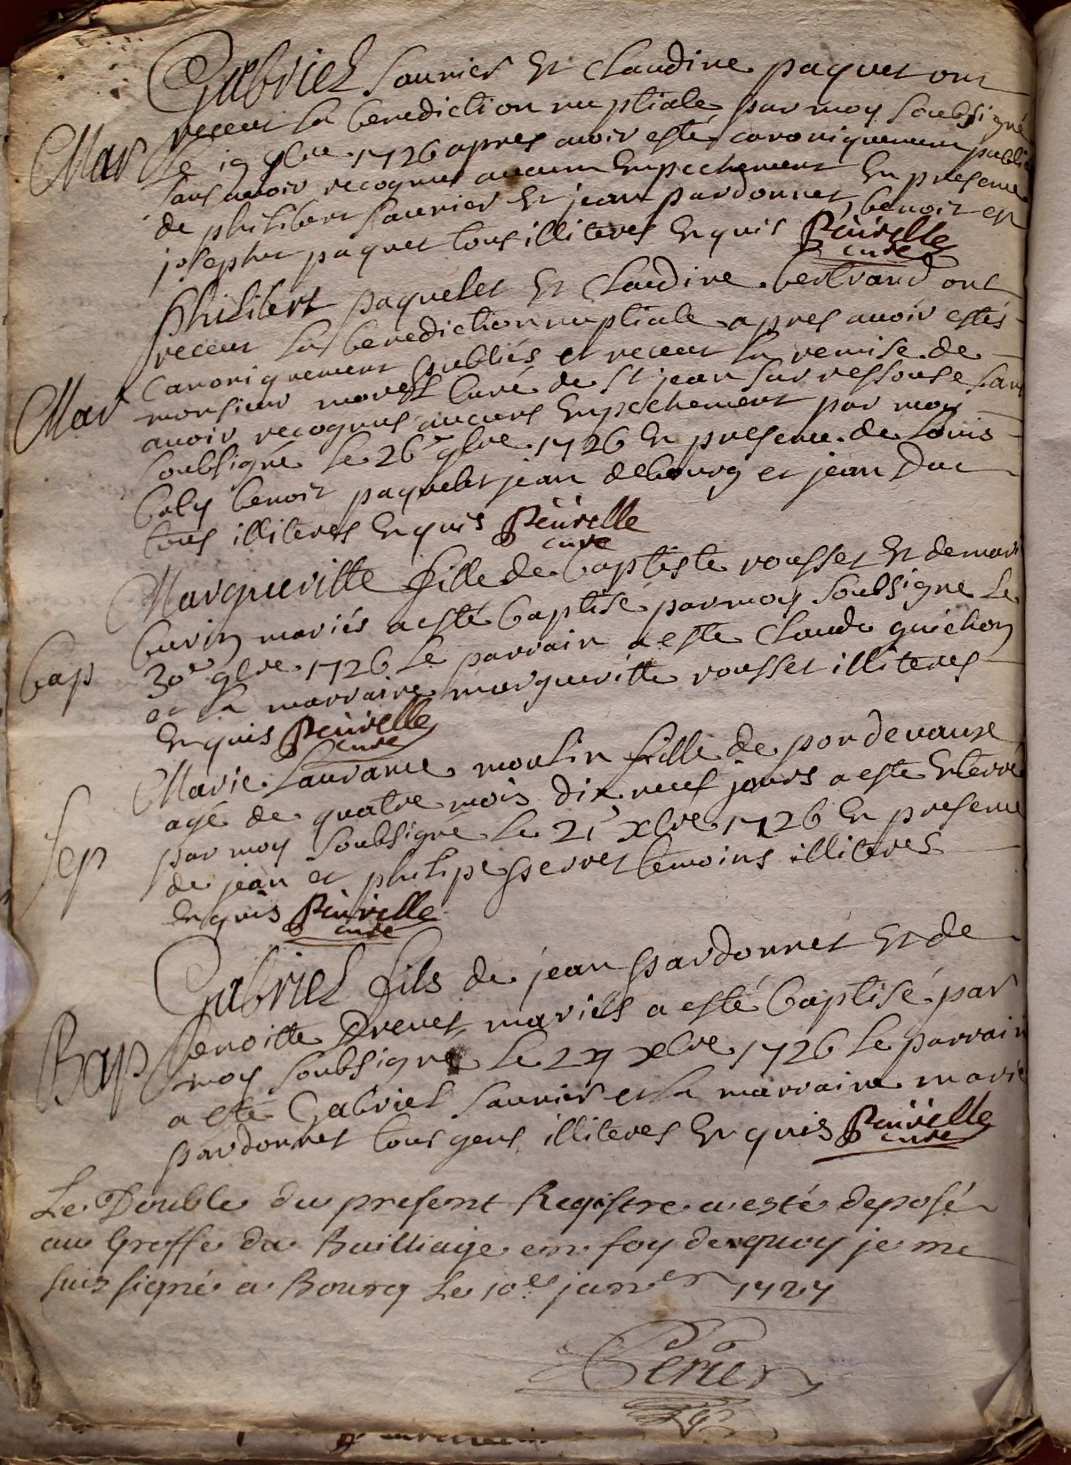 Gabriel Saunier Et Claudine paquet ont
Mar
receu la benediction nuptiale par moy soubsigné
le 19 9bre 1726 apres avoir esté canoniquement publié
sans avoir recognus aucun Empechement En presence
de philibert Saunier Et jean pardonnet, benoit et
josephe paquet tous illiteres Enquis Peuvelle
curé
philibert paquelet Et Claudine bertrand ont
receu la benediction nuptiale apres avoir estés
canoniquement publiés et receut la remise de
Mar
monsieur morel Curé de St jean sur ressouse sans
avoir recognus aucuns Empechement par moy
soubsigné le 26e 9bre 1726 En presence de Louis
boly benoit paquelet jean debourg et jean Duc
tous illiteres Enquis Peuvelle
curé
Margueritte fille de baptiste rousset Et de marie
burin mariés a esté baptisé par moy soubsigne le
Bap
30e 9bre 1726 le parrain a este Claude guichon
et la marraine margueritte rousset illiteres
Enquis Peuvelle
curé
Marie Laurance moulin fille de pondevaux
agé de quatre mois dix neuf jours a esté Enterré
Sep
par moy soubsigné le 21e xbre 1726 En presence
de jean et philipe perret temoins illiteres
Enquis Peuvelle
curé
Gabriel fils de jean pardonnet Et de
Bap
benoitte Drevet mariés a esté baptisé par
moy soubsigné le 27 xbre 1726 le parrain
a esté Gabriel Saunier et la marraine marie
pardonnet tous gens illiteres Enquis Peuvelle
curé
Le Double du present Registre a esté deposé
au Greffe du Bailliage en foy de quoy je me
suis signé a Bourg le 10e janer 1727
Perier